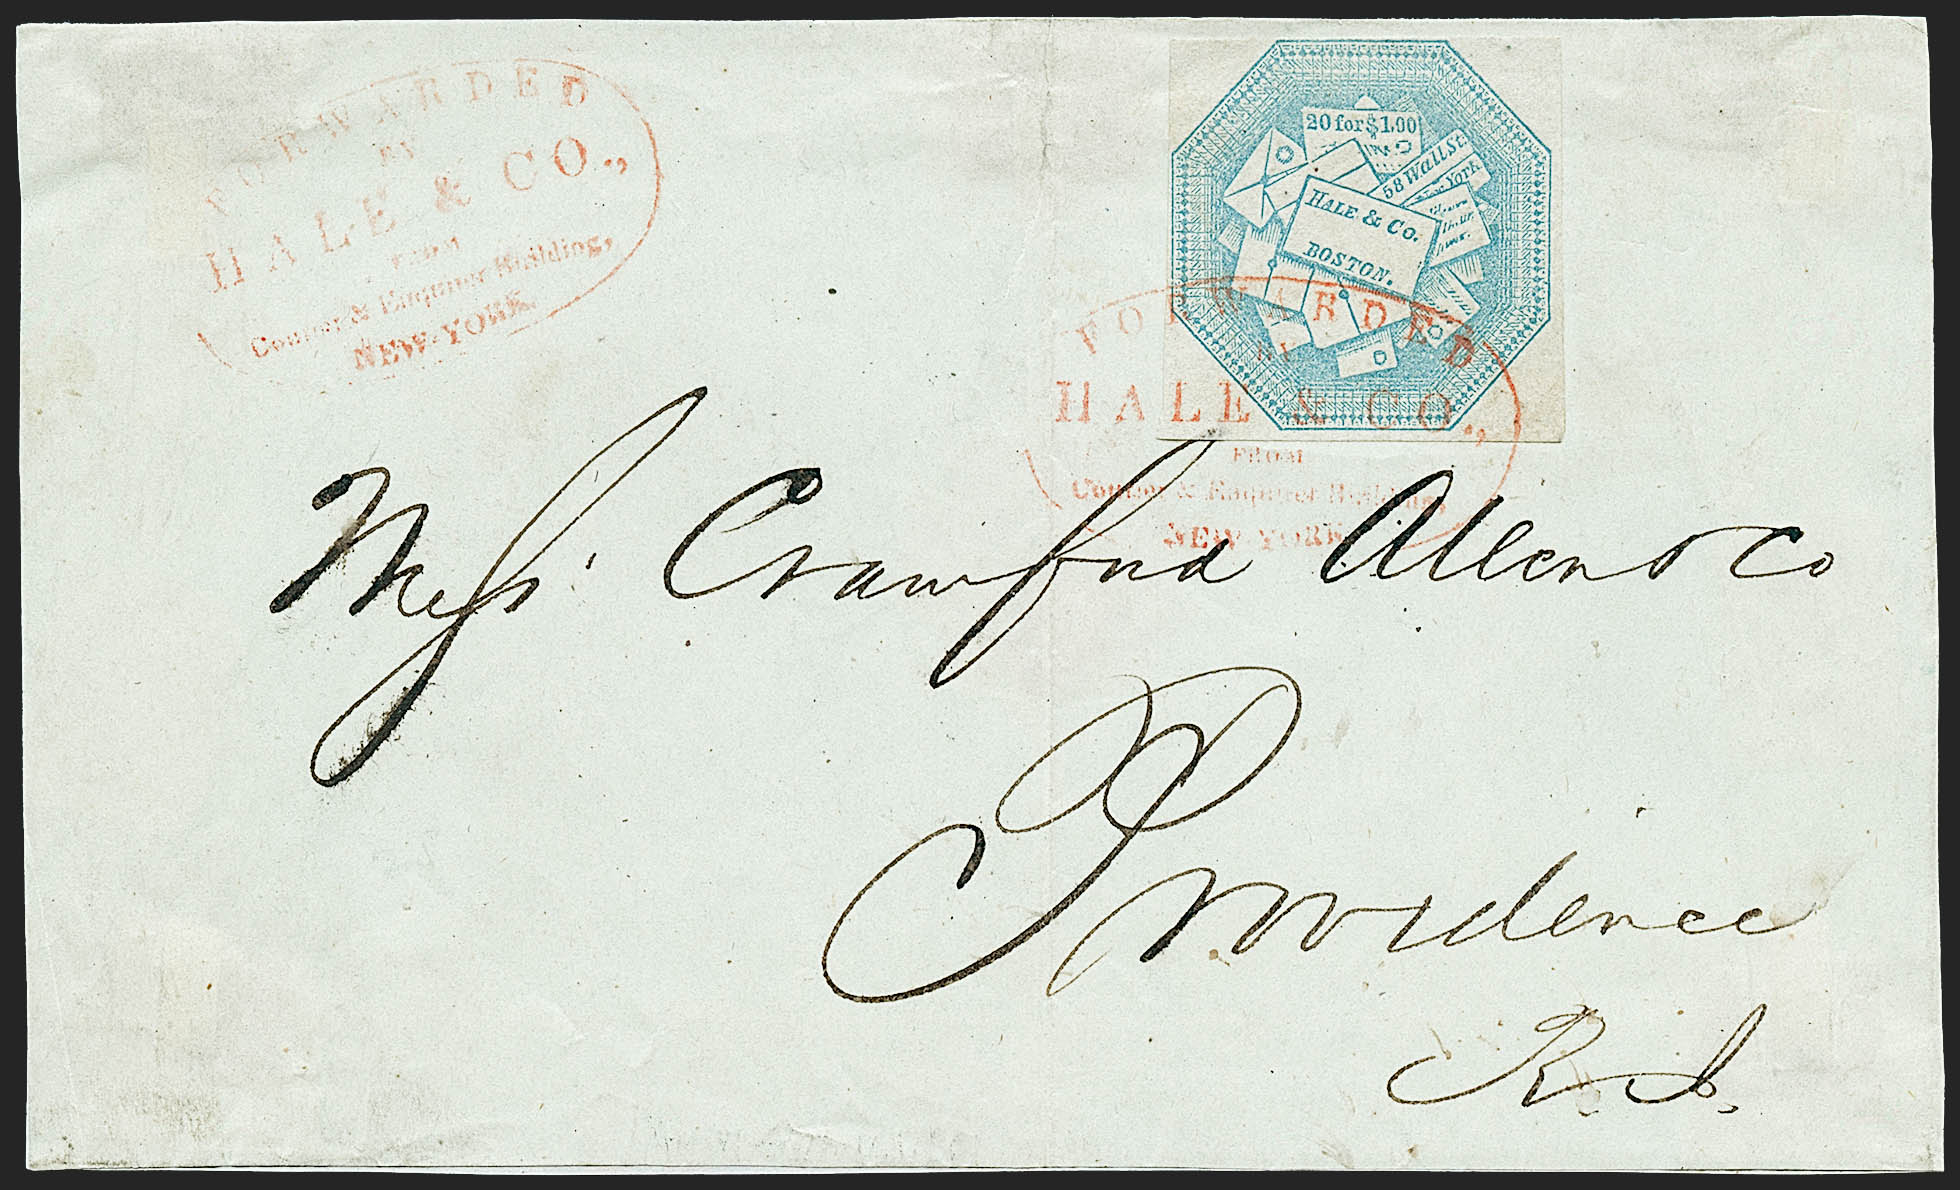 FORWARDED
BY
HALE & CO.,
FROM
Courier & Enquirer Building,
NEW-YORK.
20 for $1.00
58 Wall St.
New York
HALE & Co.
BOSTON.
FORWARDED
BY
HALE & CO.,
FROM
Courier & Enquirer Building,
NEW-YORK
Mess. Crawford Allen & Co
Providence
R. I.